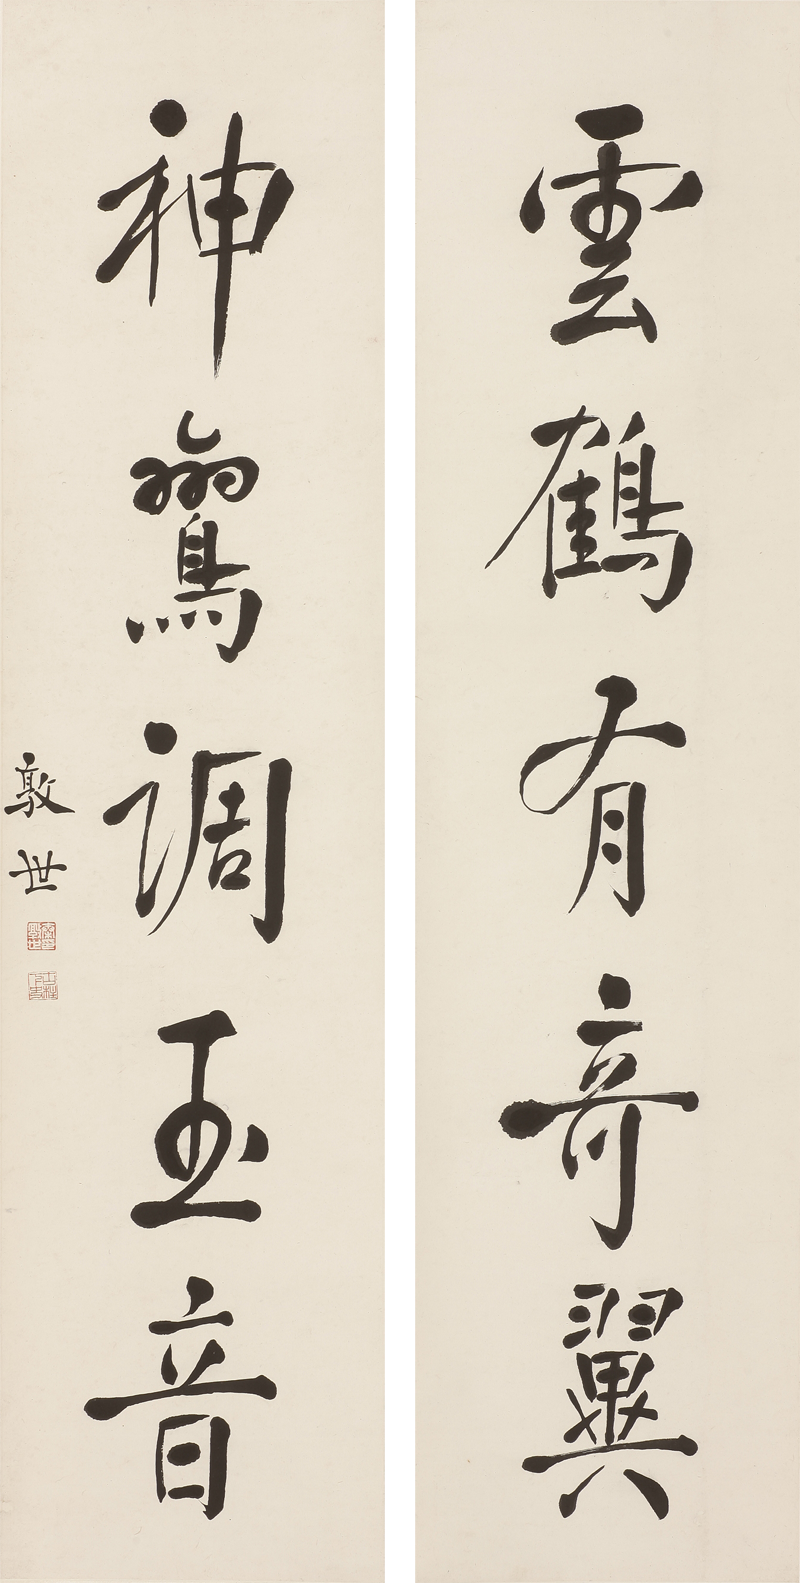 雲鶴有奇翼
神鸞調玉音
敦世